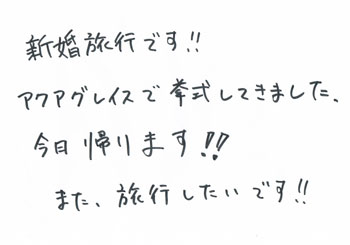 新婚旅行です!!
アクアグレイスで挙式してきました、
今日帰ります!!
また、旅行したいです!!